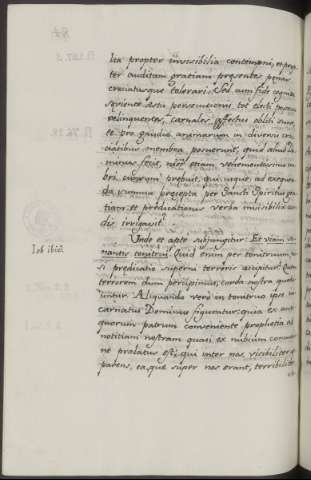 lia propter invisibilia contemni, et prop
ter auditam gratiam præsentes pœnas
cruciatusque tolerari. Sed cum fide cognita
sæviente æstu persecutionis, tot electi
relinquentes, carnales affectus obliti sunt
te pro gaudio animarum in diversis cru
ciatibus membra posuerunt, quid aliud Do
minus fecit, nisi etiam vehementissimo im
bri cursum præbuit, qui usque ad exequen
da summa præcepta per Sancti Spiritus gra
tiam et prædicationis verba invisibilia cor
dis irrigavit?
Unde et apte subjungitur: Et viam so
nantis tonitrui. Quid enim per tonitruum, ni
si prædicatio superni terroris accipitur? Quem
terrorem dum percipiunt, corda nostra quati
untur. Aliquando vero in tonitruo ipse in
carnatus Dominus figuratur: quia ex anti
quorum patrum conveniente prophetia ad
notitiam nostram quasi ex nubium concursio
ne prolatus est; qui inter nos visibiliter ap
parens, ea, quæ super nos erant, terribiliter
Iob ibid.